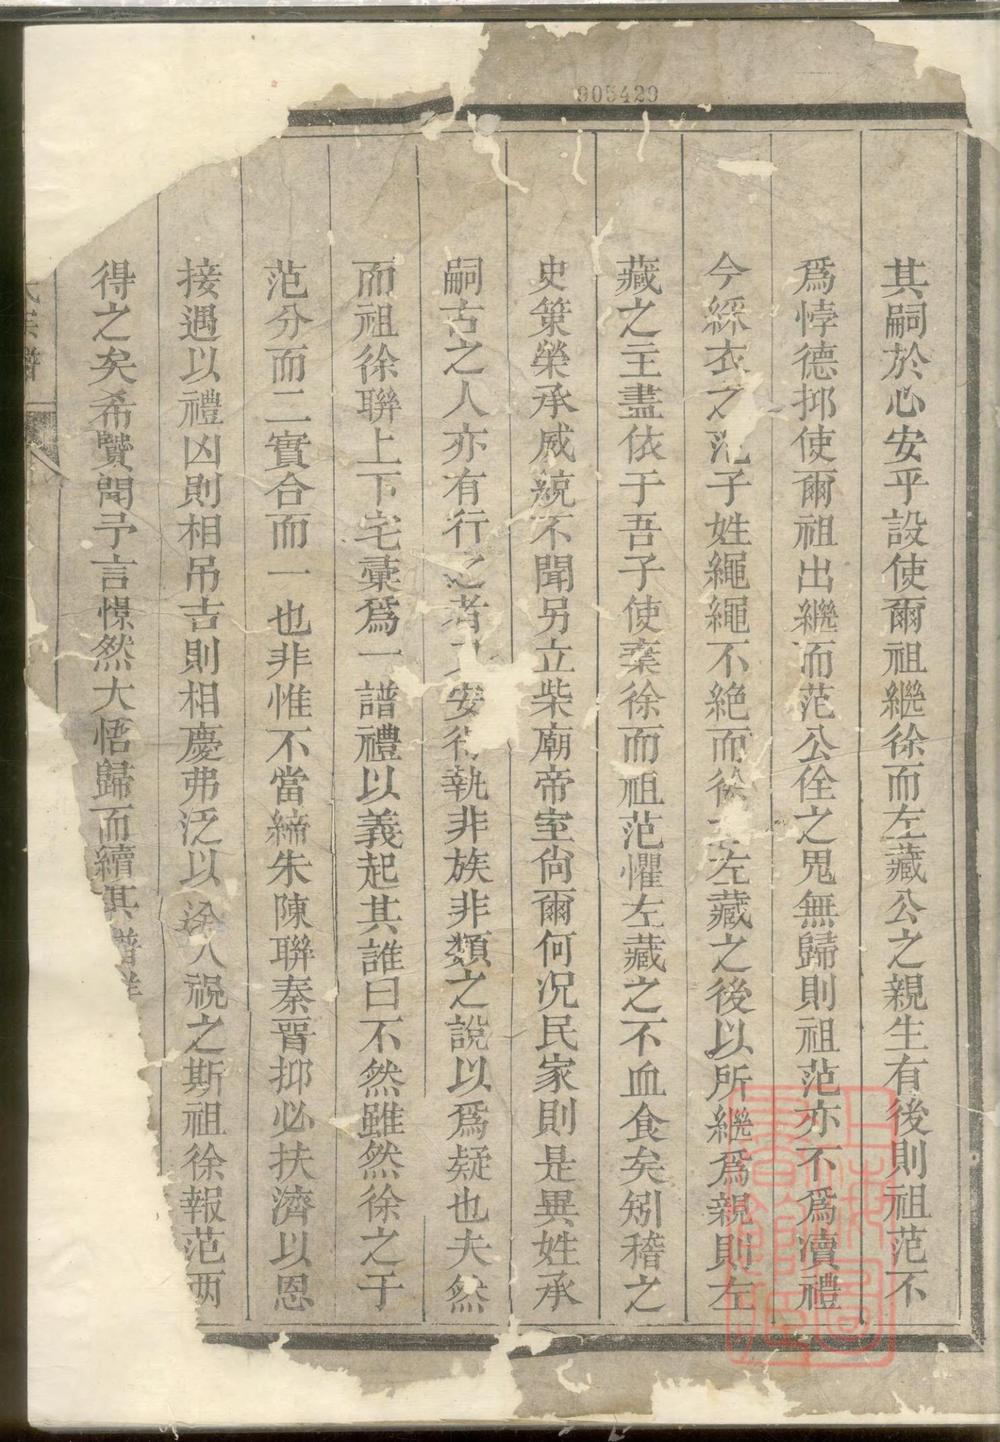 905429
其嗣於心安乎設使爾祖繼徐而左藏公之親生有後則祖范不
爲悖德抑使爾祖出繼而范公佺之鬼無歸則祖范亦不爲瀆禮
今綵衣之范子姓繩繩不絶而徐左藏之後以所繼爲親則左
藏之主盡依于吾子使棄徐而祖范懼左藏之不血食矣矧稽之
史策榮承威統不聞另立柴廟帝室尙爾何况民家則是異姓承
嗣古之人亦有行之者安得執非族非類之說以爲疑也夫然
而祖徐聯上下宅彙爲一譜禮以義起其誰曰不然雖然徐之于
范分而二實合而一也非惟不當締朱陳聯秦晋抑必扶濟以恩
接遇以禮凶則相吊吉則相慶弗泛以涂人視之斯祖徐報范两
得之矣希贒聞予言憬然大悟歸而續其譜
氏宗譜
上海圖書館藏